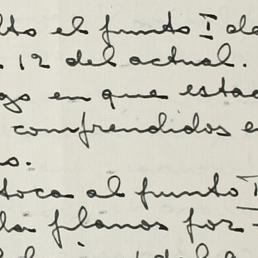 el punto I de
12 del actual.
en que esta
comprendidos e
toca al punto I
planos por